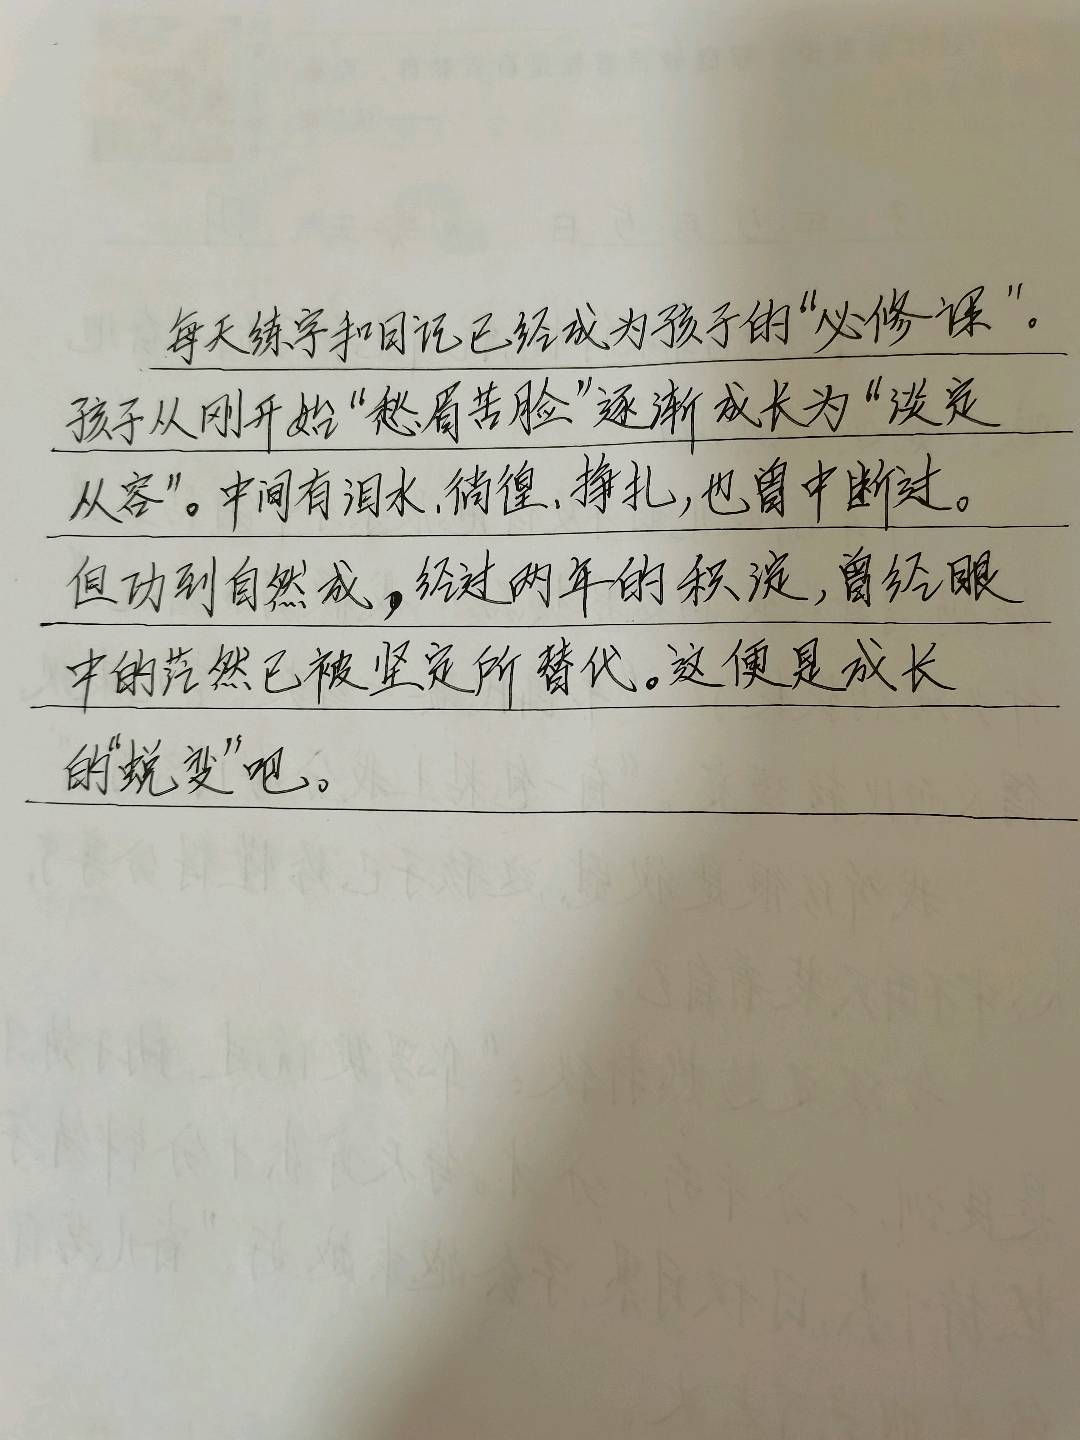 每天练字和日记已经成为孩子的“必修课”。
孩子从刚开始“愁眉苦脸”逐渐成长为“淡定
从容”。中间有泪水、徜徨、挣扎，也曾中断过。
但功到自然成，经过两年的积淀，曾经眼
中的茫然已被坚定所替代。这便是成长
的“蜕变”吧。